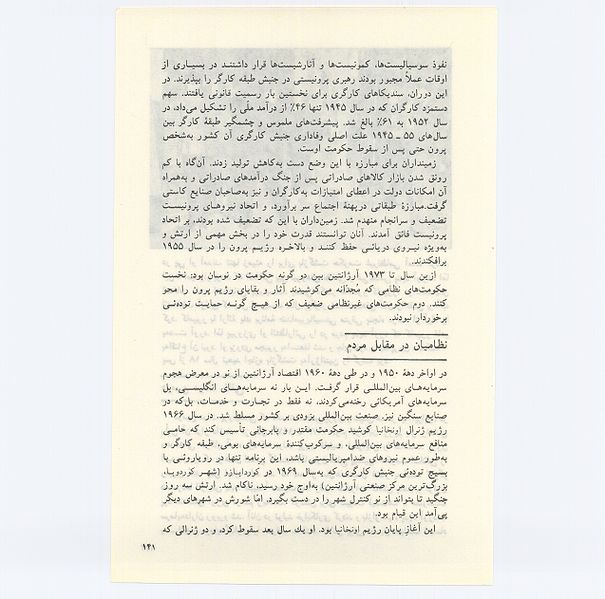 نفوذ سوسیالیست‌ها، کمونیست‌ها و آنارشیست‌ها قرار داشتند در بسیاری از
اوقات عملاً مجبور بودند رهبری پرونیستی در جنبش طبقه کارگر را بپذیرند. در
این دوران، سندیکاهای کارگری برای نخستین بار رسمیت قانونی یافتند. سهم
دستمزد کارگران که در سال ۱۹۴۵ تنها ۴۶٪ از درآمد ملّی را تشکیل می‌داد، در
سال ۱۹۵۲ به ۶۱٪ بالغ شد. پیشرفت‌های ملموس و چشمگیر طبقهٔ کارگر بین
سال‌های ۵۵ ــ ۱۹۴۵ علت اصلی وفاداری جنبش کارگری آن کشور به‌شخص
پرون حتی پس از سقوط حکومت اوست.
زمینداران برای مبارزه با این وضع دست به‌کاهش تولید زدند. آن‌گاه با کم
رونق شدن بازار کالاهای صادراتی پس از جنگ درآمدهای صادراتی و به‌همراه
آن امکانات دولت در اعطای امتیازات به‌کارگران و نیز به‌صاحبان صنایع کاستی
گرفت.مبارزهٔ طبقاتی درپهنهٔ اجتماع سر برآورد، و اتحاد نیروهای پرونیست
تضعیف و سرانجام منهدم شد. زمین‌داران با این که تضعیف شده بودند، بر اتحاد
پرونیست فائق آمدند. آنان توانستند قدرت خود را در بخش مهمی از ارتش و
به‌ویژه نیروی دریائی حفظ کنند و بالاخره رژیم پرون را در سال ۱۹۵۵
برافکندند.
ازین سال تا ۱۹۷۳ آرژانتین بین دو گونه حکومت در نوسان بود: نخست
حکومت‌های نظامی که مُجدّانه می‌کوشیدند آثار و بقایای رژیم پرون را محو
کنند. دوم حکومت‌های غیرنظامی ضعیف که از هیچ گونه حمایت توده‌ئی
برخوردار نبودند.
نظامیان در مقابل مردم
در اواخر دههٔ ۱۹۵۰ و در طی دههٔ ۱۹۶۰ اقتصاد آرژانتین از نو در معرض هجوم
سرمایه‌های بین‌المللی قرار گرفت. این بار نه سرمایه‌های انگلیسی، بل
سرمایه‌های آمریکائی رخنه‌می‌کردند، نه فقط در تجارت و خدمات، بل‌که در
صنایع سنگین نیز. صنعت بین‌المللی بزودی بر کشور مسلط شد. در سال ۱۹۶۶
رژیم ژنرال اونخانیا کوشید حکومت مقتدر و پابرجائی تأسیس کند که حامی
منافع سرمایه‌های بین‌المللی، و سرکوب‌کنندهٔ سرمایه‌های بومی، طبقه کارگر و
به‌طور عموم نیروهای ضدامپریالیستی باشد، این برنامه تنها در رویاروئی با
بسیج توده‌ئی جنبش کارگری که به‌سال ۱۹۶۹ در کوردابازو (شهر کوردوبا،
بزرگ‌ترین مرکز صنعتی آرژانتین) به‌اوج خود رسید، ناکام شد. ارتش سه روز
جنگید تا بتواند از نو کنترل شهر را در دست بگیرد. امّا شورش در شهرهای دیگر
پی‌آمد این قیام بود.
این آغاز پایان رژیم اونخانیا بود. او یك سال بعد سقوط کرد، و دو ژنرالی که
۱۴۱